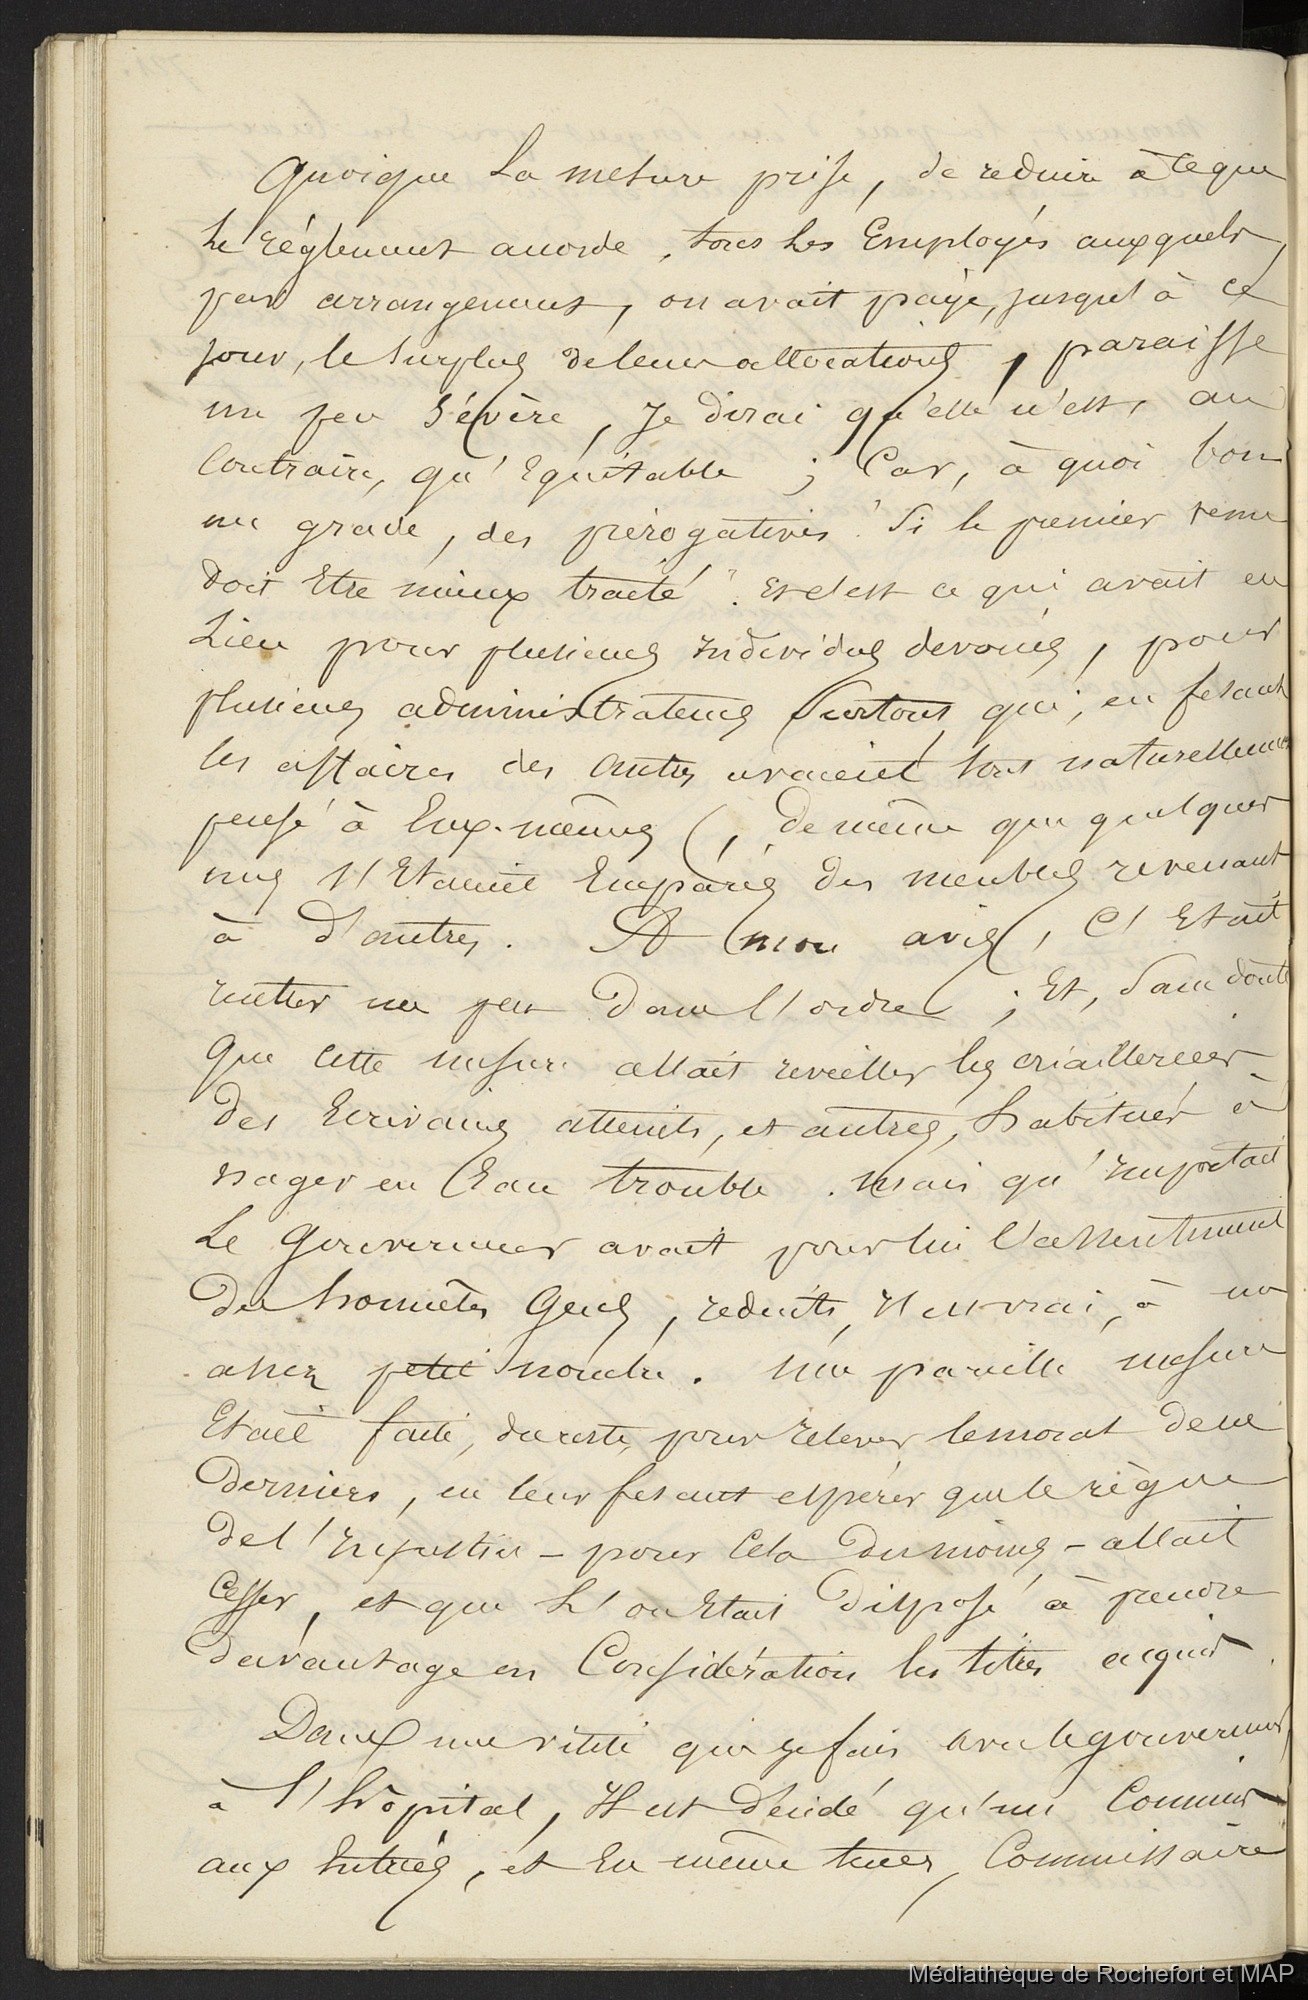 Quoique la mesure prise, de reduire à ce que
le réglement accorde, tous les Employés auxquels,
par arrangement, on avait payé, jusqu'à ce
jour, le surplus de leurs allocations, paraisse
un peu sévère, Je dirai qu'elle n'est, au
Contraire, qu'Equitable ; Car, à quoi bon
un grade, des prérogatives si le premier venu
doit Etre mieux traité ? Et c'est ce qui avait eu
Lieu pour plusieurs Individus dévoués, pour
plusieurs administrateurs surtout qui, en fesant
les affaires des autres avaient tout naturellement
pensé à Eux-mêmes, de même que quelques
uns s'Etaient Emparés des meubles revenant
à d'autres. A mon avis, C'Etait
mettre un peu dans l'ordre ; Et, Sans doute
que cette mesure allait reveiller les criailleries
des Ecrivains atteints, et autres, habitués à
nager en Eau trouble. Mais qu'importait
Le Gouverneur avait pour lui l'assentiment
des honnêtes Gens, reduits, Il est vrai, à un
assez petit nombre. Une pareille mesure
Etait faite, du reste, pour relever le moral de ces
derniers, en leur fesant espérer que le règne
de l'Injustice - pour Cela du moins - allait
Cesser, et que L'on Etait disposé à prendre
davantage en Considération les titres acquis.
Dans une visite que je fais avec le gouverneur
à l'hôpital, Il est décidé qu'un Commis
aux Entrées, et En même tems, Commissaire
Médiathèque de Rochefort et MAP